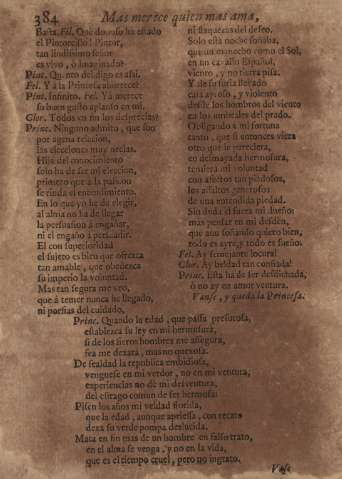 384 Mas merece quien mas ama,
Basta. Fel. Que donoso ha estado
el Pintorcillo! Pintor,
tan lindissimo señor
es vivo, ò imaginado?
Pint. Quanto del digo es assi.
Fel. Y à la Princesa aborrece?
Pint. Infinito. Fel. Ya merece
su buen gusto aplauso en mi.
Clor. Todos en fin los desprecias?
Princ. Ninguno admito, que son
por agena relacion,
las elecciones muy necias.
Hija del conocimiento
solo ha de ser mi eleccion,
primero que à la passion
se rinda el entendimiento.
En lo que yo he de elegir,
al alma no ha de llegar
la persuasion à engañar,
ni el engaño à persuadir.
El con superioridad
el sujeto es bien que ofrezca
tan amable, que obedezca
su imperio la voluntad.
Mas tan segura me veo,
que à temer nunca he llegado,
ni poessias del cuidado,
ni flaquezas del deseo.
Solo esta noche soñaba,
que un mancebo como el Sol,
en un cavallo Español,
viento, y no tierra pisa.
Y de su furia llevado
cayò ayroso, y violento
desde los hombros del viento
en los umbrales del prado.
Obligando à mi fortuna
tanto, que si entonces viera
otro que le pareciera,
en desmayada hermosura,
rindiera mi voluntad
con afectos tan piadosos,
los assaltos generosos
de una entendida piedad.
Sin duda si fuera mi dueño;
mas pensar en mi desdén,
que aun soñando quiero bien,
todo es ayre, y todo es sueño.
Fel. Ay semejante locura!
Clor. Ay beldad tan confiada!
Princ. Esta ha de ser desdichada,
ò no ay en amor ventura.
Vanse, y queda la Princesa.
Princ. Quando la edad, que passa presurosa,
establezca su ley en mi hermosura,
si de los fieros hombres me assegura,
fea me dexarà, mas no quexosa.
De fealdad la republica embidiosa,
venguese en mi verdor, no en mi ventura,
experiencias no dè mi desventura,
del estrago comun de ser hermosa:
Pisen los años mi beldad florida,
que la edad, aunque apriessa, con recato
dexa su verde pompa deslucida.
Mata en fin mas de un hombre en falso trato,
en el alma se venga, y no en la vida,
que es el tiempo cruel, pero no ingrato.
Vase